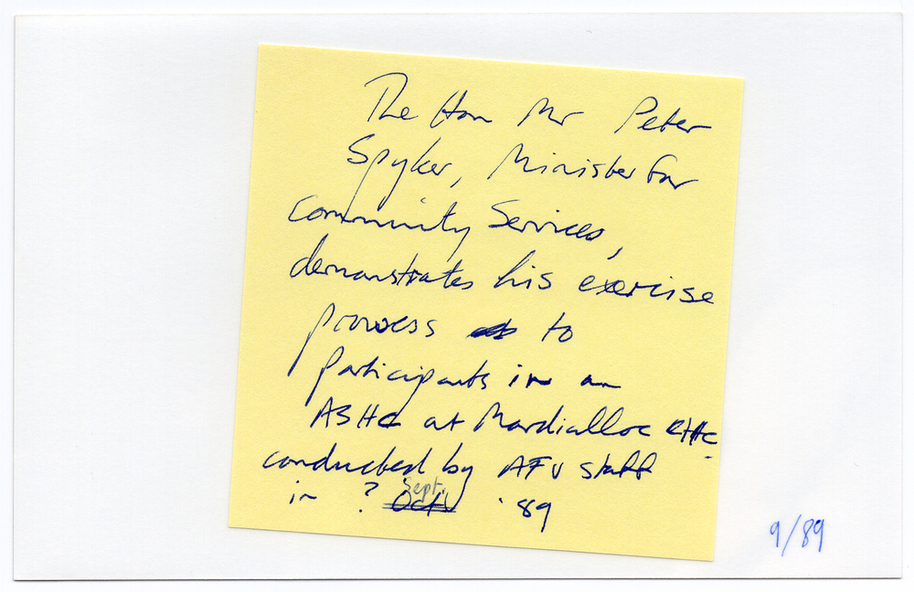 The Hon Mr Peter
Spyker, Minister for
Community Services,
demonstrates his exercise
prowess to
participants in an
ASHC at Mordialloc CHC
conducted by AFV staff
in ? Sept. '89
9/89